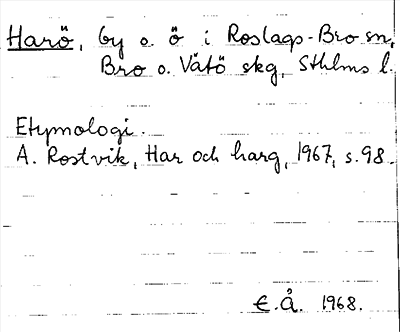 Harö, by o. ö i Roslags-Bro sn,
Bro o. Vätö skg, Sthlms l.
Etymologi.
A. Rostvik, Har och harg, 1967, s. 98.
E.Å. 1968.